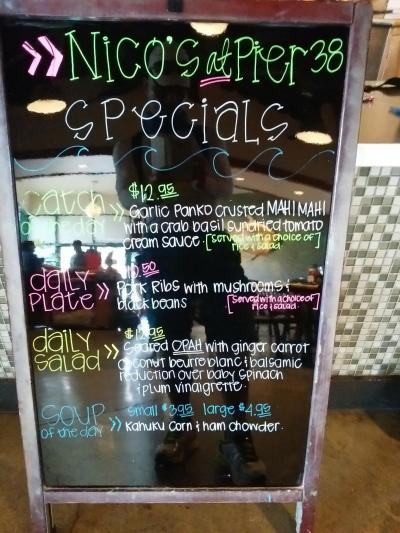 >> Nico's at Pier 38
Specials
Catch of the day >> $12.95
Garlic Panko Crusted MAHI MAHI
with a crab basil sundried tomato
cream sauce. [served with a choice of
rice & salad.]
daily Plate >> $10.50
Pork Ribs with mushrooms &
black beans [served with a choice of
rice & salad.]
daily Salad >>
Seared OPAH with ginger carrot
coconut beurre blanc & balsamic
reduction over baby spinach
& plum vinaigrette.
Soup of the day >> small $3.95 large $4.95
Kahuku corn & ham chowder.